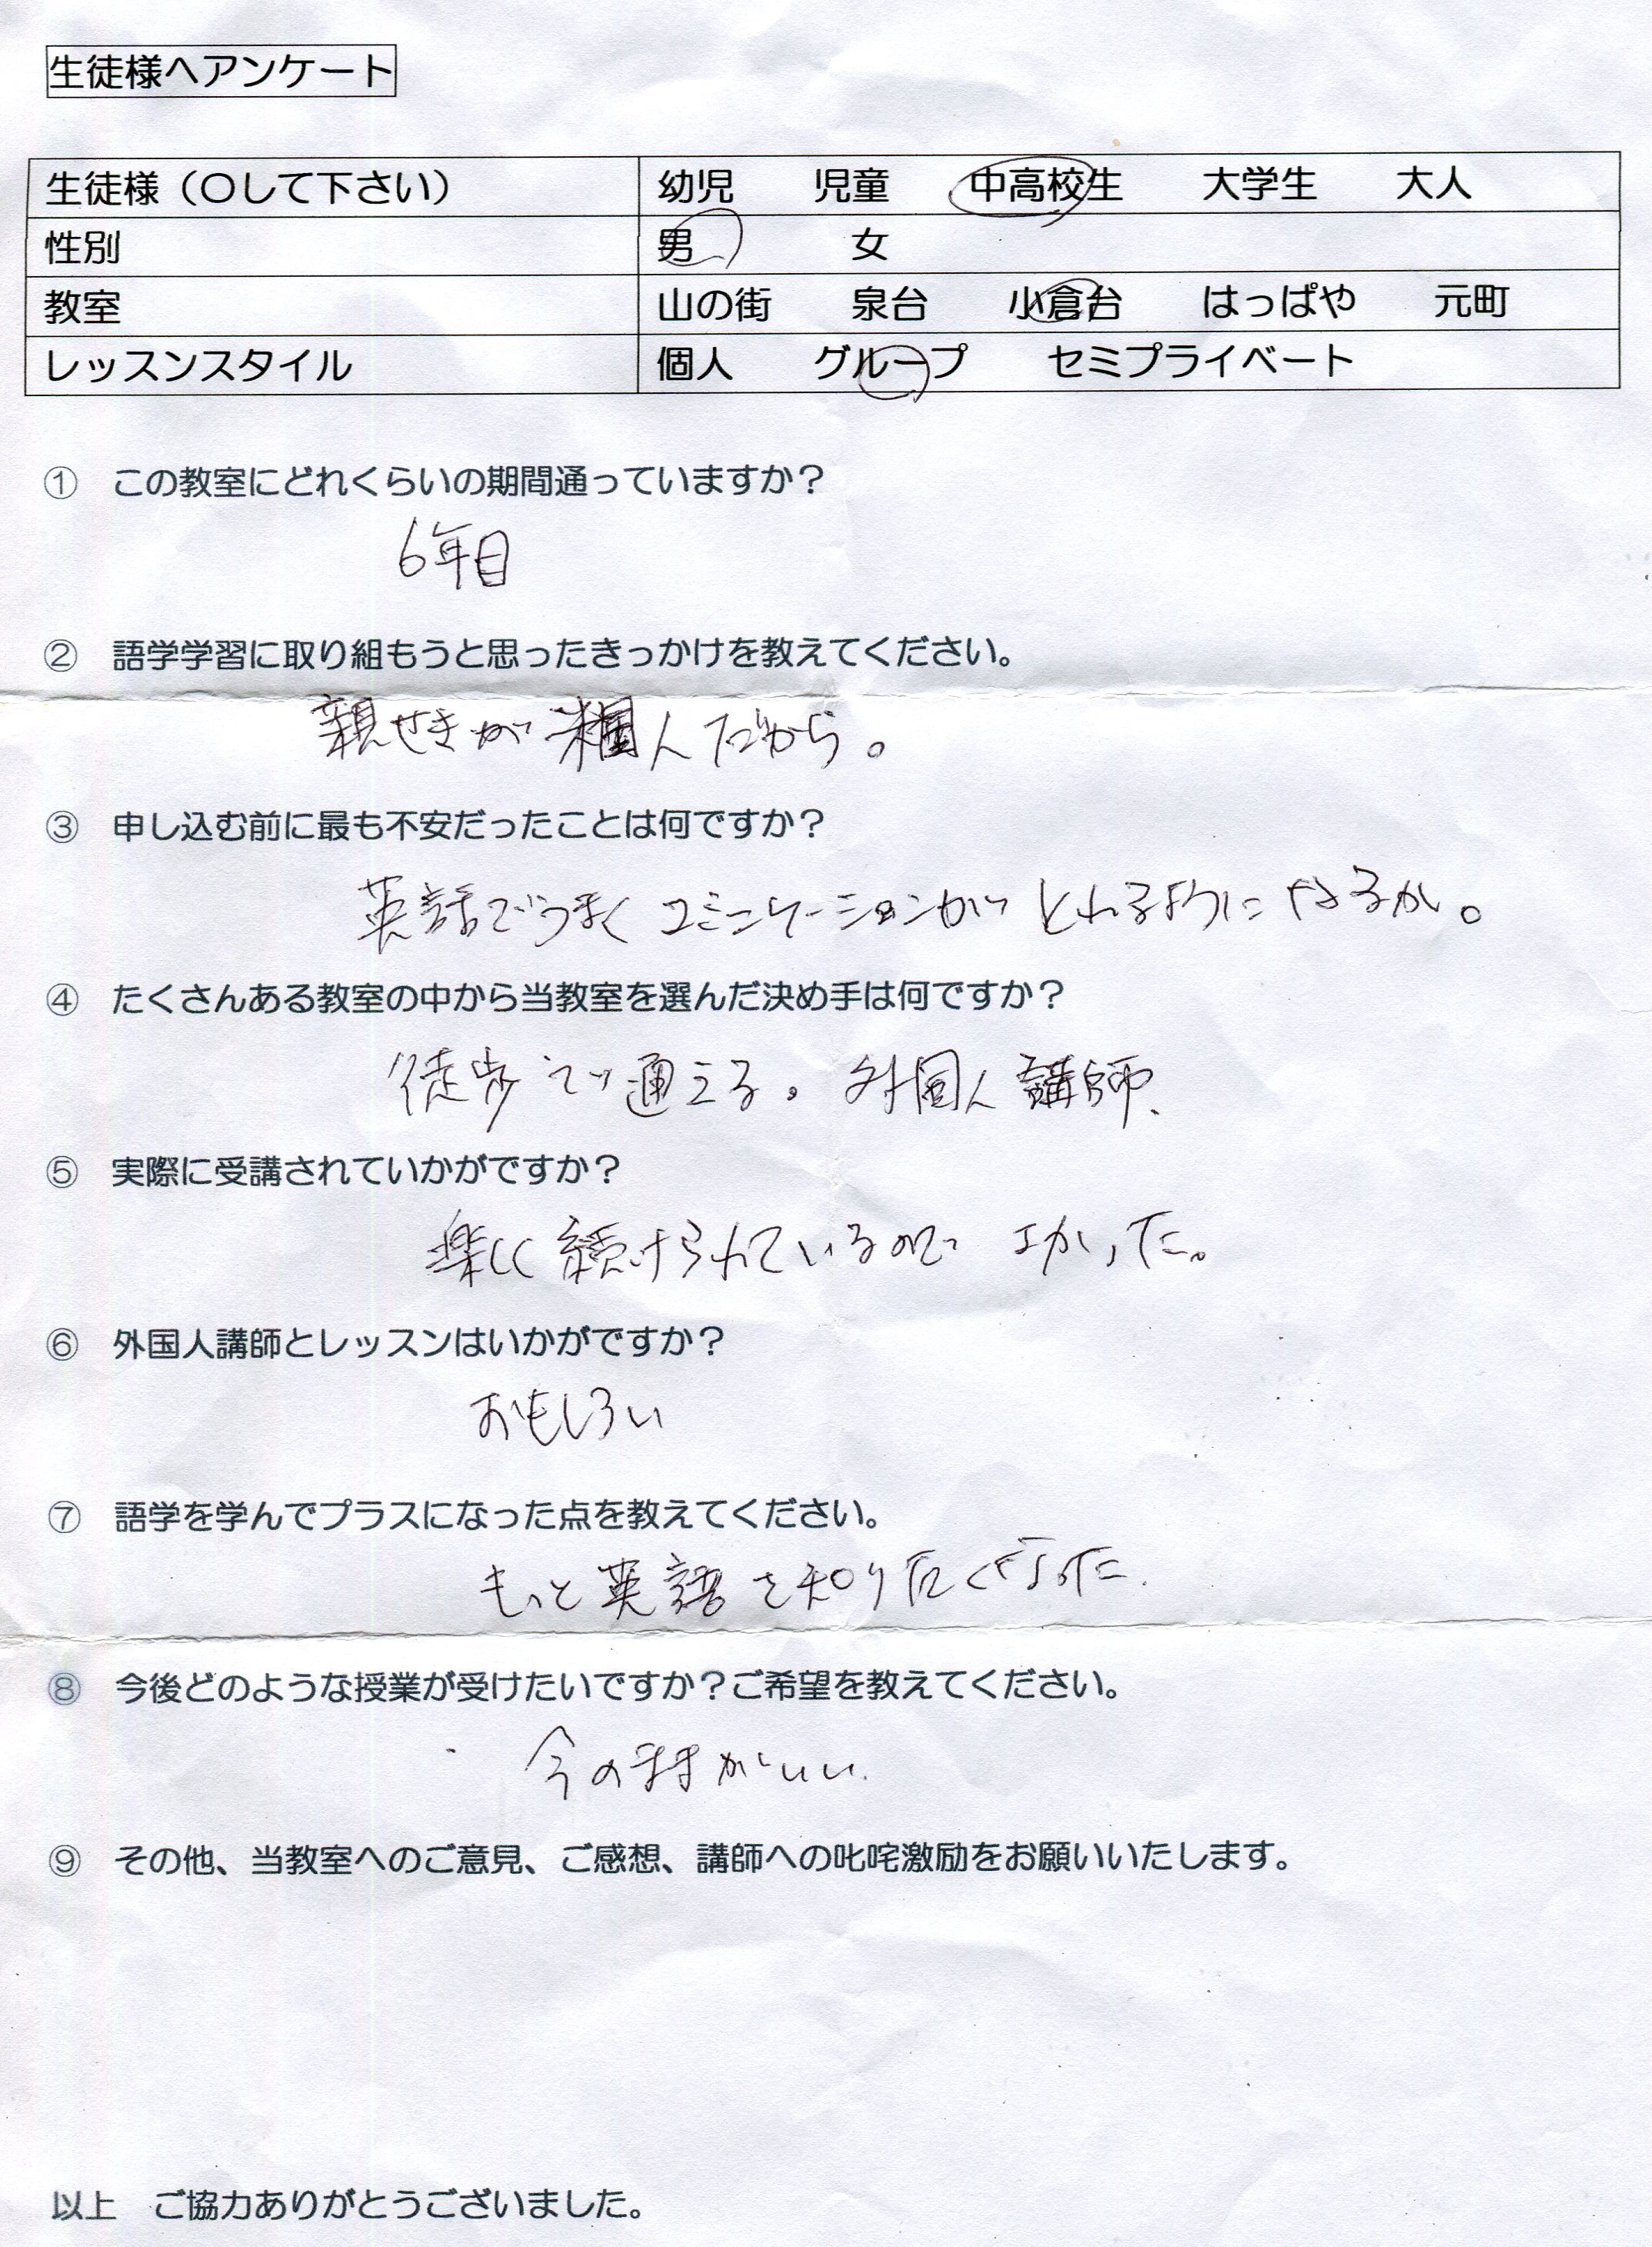 生徒様へアンケート
生徒様（〇して下さい） 幼児 児童 中高校生 大学生 大人
性別 男 女
教室 山の街 泉台 小倉台 はっぱや 元町
レッスンスタイル 個人 グループ セミプライベート
① この教室にどれくらいの期間通っていますか？
6年目
② 語学学習に取り組もうと思ったきっかけを教えてください。
親せきが米国人だから。
③ 申し込む前に最も不安だったことは何ですか？
英語でうまくコミニケーションがとれるようになるか。
④ たくさんある教室の中から当教室を選んだ決め手は何ですか？
徒歩で通える。外国人講師、
⑤ 実際に受講されていかがですか？
楽しく続けられているのでよかった。
⑥ 外国人講師とレッスンはいかがですか？
おもしろい
⑦ 語学を学んでプラスになった点を教えてください。
もっと英語を知りたくなった.
⑧ 今後どのような授業が受けたいですか？ご希望を教えてください。
今のままがいい.
⑨ その他、当教室へのご意見、ご感想、講師への叱咤激励をお願いいたします。
以上 ご協力ありがとうございました。